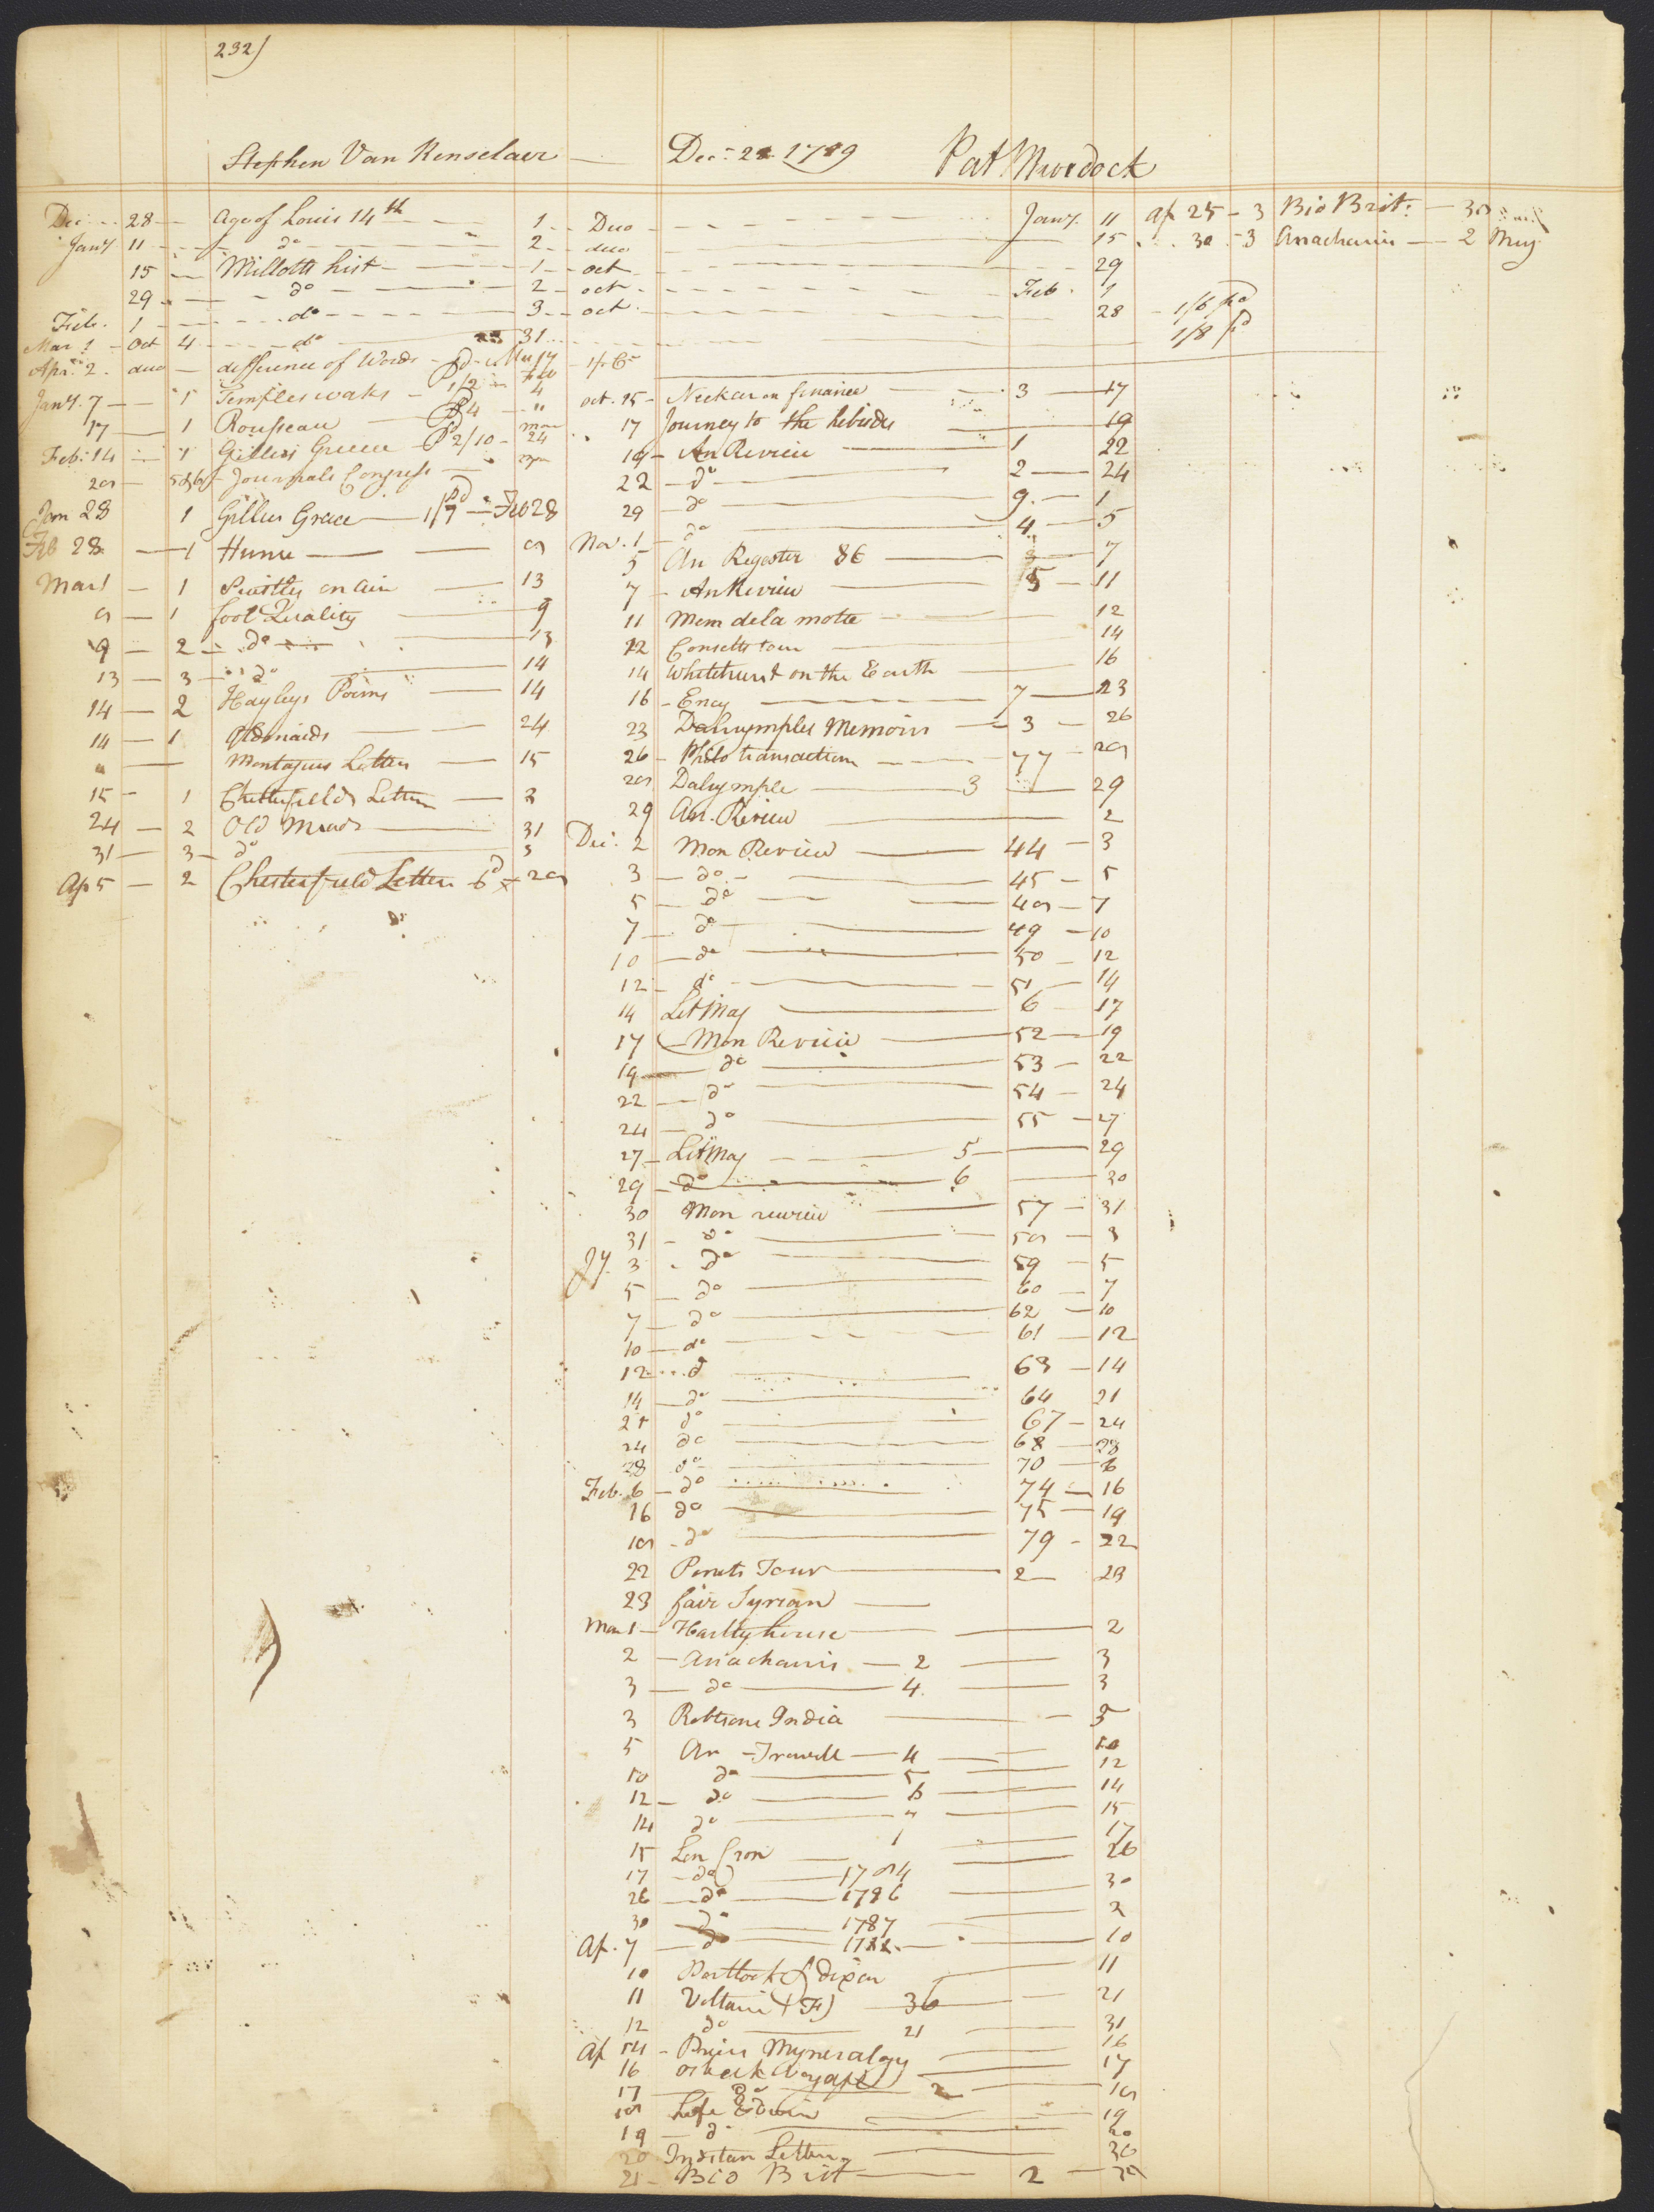 232)
Stephen Van Renselaer — Dec: 28 1789
Dec: 28 Age of Louis 14th 1 Duo Jany. 11
Jany 11 do 2 duo 15
15 Millotts hist 1 oct 29
29 do 2 oct Feb. 1
Feb. 1 do 3 oct 28 1/6 pd
Mar 1 Oct 4 do 31 1/8 pd
Apr. 2. duo difference of Words pd
Jany. 7 1 Temples works 1/2 4
17 1 Rousseau 4 "
Feb: 14 1 Gillies Greece 2/10 24
20 5&6 Journals Congress
Jan 28 1 Gillies Greece 1/7 pd Feb 28
Feb 28 1 Hume 8
Mar 1 1 Priestley on Air 13
8 1 fool Quality 9
9 2 do 13
13 3 do 14
14 2 Hayleys Poems 14
14 1 Old maids 24
" Montagues Letters 15
15 1 Chesterfields Letters 2
24 2 Old Maids 31
31 3 do 5
Ap 5 2 Chesterfield Letters 6d 28
Pat Murdock
oct. 15 Neckar on finance 3 17
17 Journey to the hebrides 19
19 An Review 1 22
22 do 2 24
29 do 9. 1
Nov. 1 do 4 5
5 An Regester 86 7
7 An Review 5 11
11 Mem de la motte 12
12 Consetts tour 14
14 Whitehurst on the Earth 16
16 Ency 7 23
23 Dalrymples Memoirs 3 26
26 Philo transactions 77 28
28 Dalrymple 3 29
29 An. Review 2
Dec: 2 Mon Review 44 3
3 do 45 5
5 do 48 7
7 do 49 10
10 do 50 12
12 do 51 14
14 Lit Mag 6 17
17 Mon Review 52 19
19 do 53 22
22 do 54 24
24 do 55 27
27 Lit Mag 5 29
29 do 6 30
30 Mon review 57 31
31 do 58 3
Jy. 3 do 59 5
5 do 60 7
7 do 62 10
10 do 61 12
12 do 63 14
14 do 64 21
21 do 67 24
24 do 68 28
28 do 70 6
Feb. 6 do 74 16
16 do 75 19
18 do 79 22
22 Tour 2 23
23 fair Syrian
Mar 1 Hartly house 2
2 Anacharsis 2 3
3 do 4. 3
3 Robtsons India 5
5 An Travell 4 10
10 do 5 12
12 do 6 14
14 do 7 15
15 Lon Cron 1 17
17 do 1784 26
26 do 1786 30
30 do 1787 2
Ap. 7 do 1788 10
10 Portlock & Dixon 11
11 Voltaire (F) 36 21
12 do 21 31
Ap 14 Myneralogy 16
16 17
17 do 2 18
18 Life Edwin 19
19 do 20
20 Letters 20
21 Bio Brit 2 25
Ap 25 3 Bio Brit: 30
30 3 Anacharsis 2 May